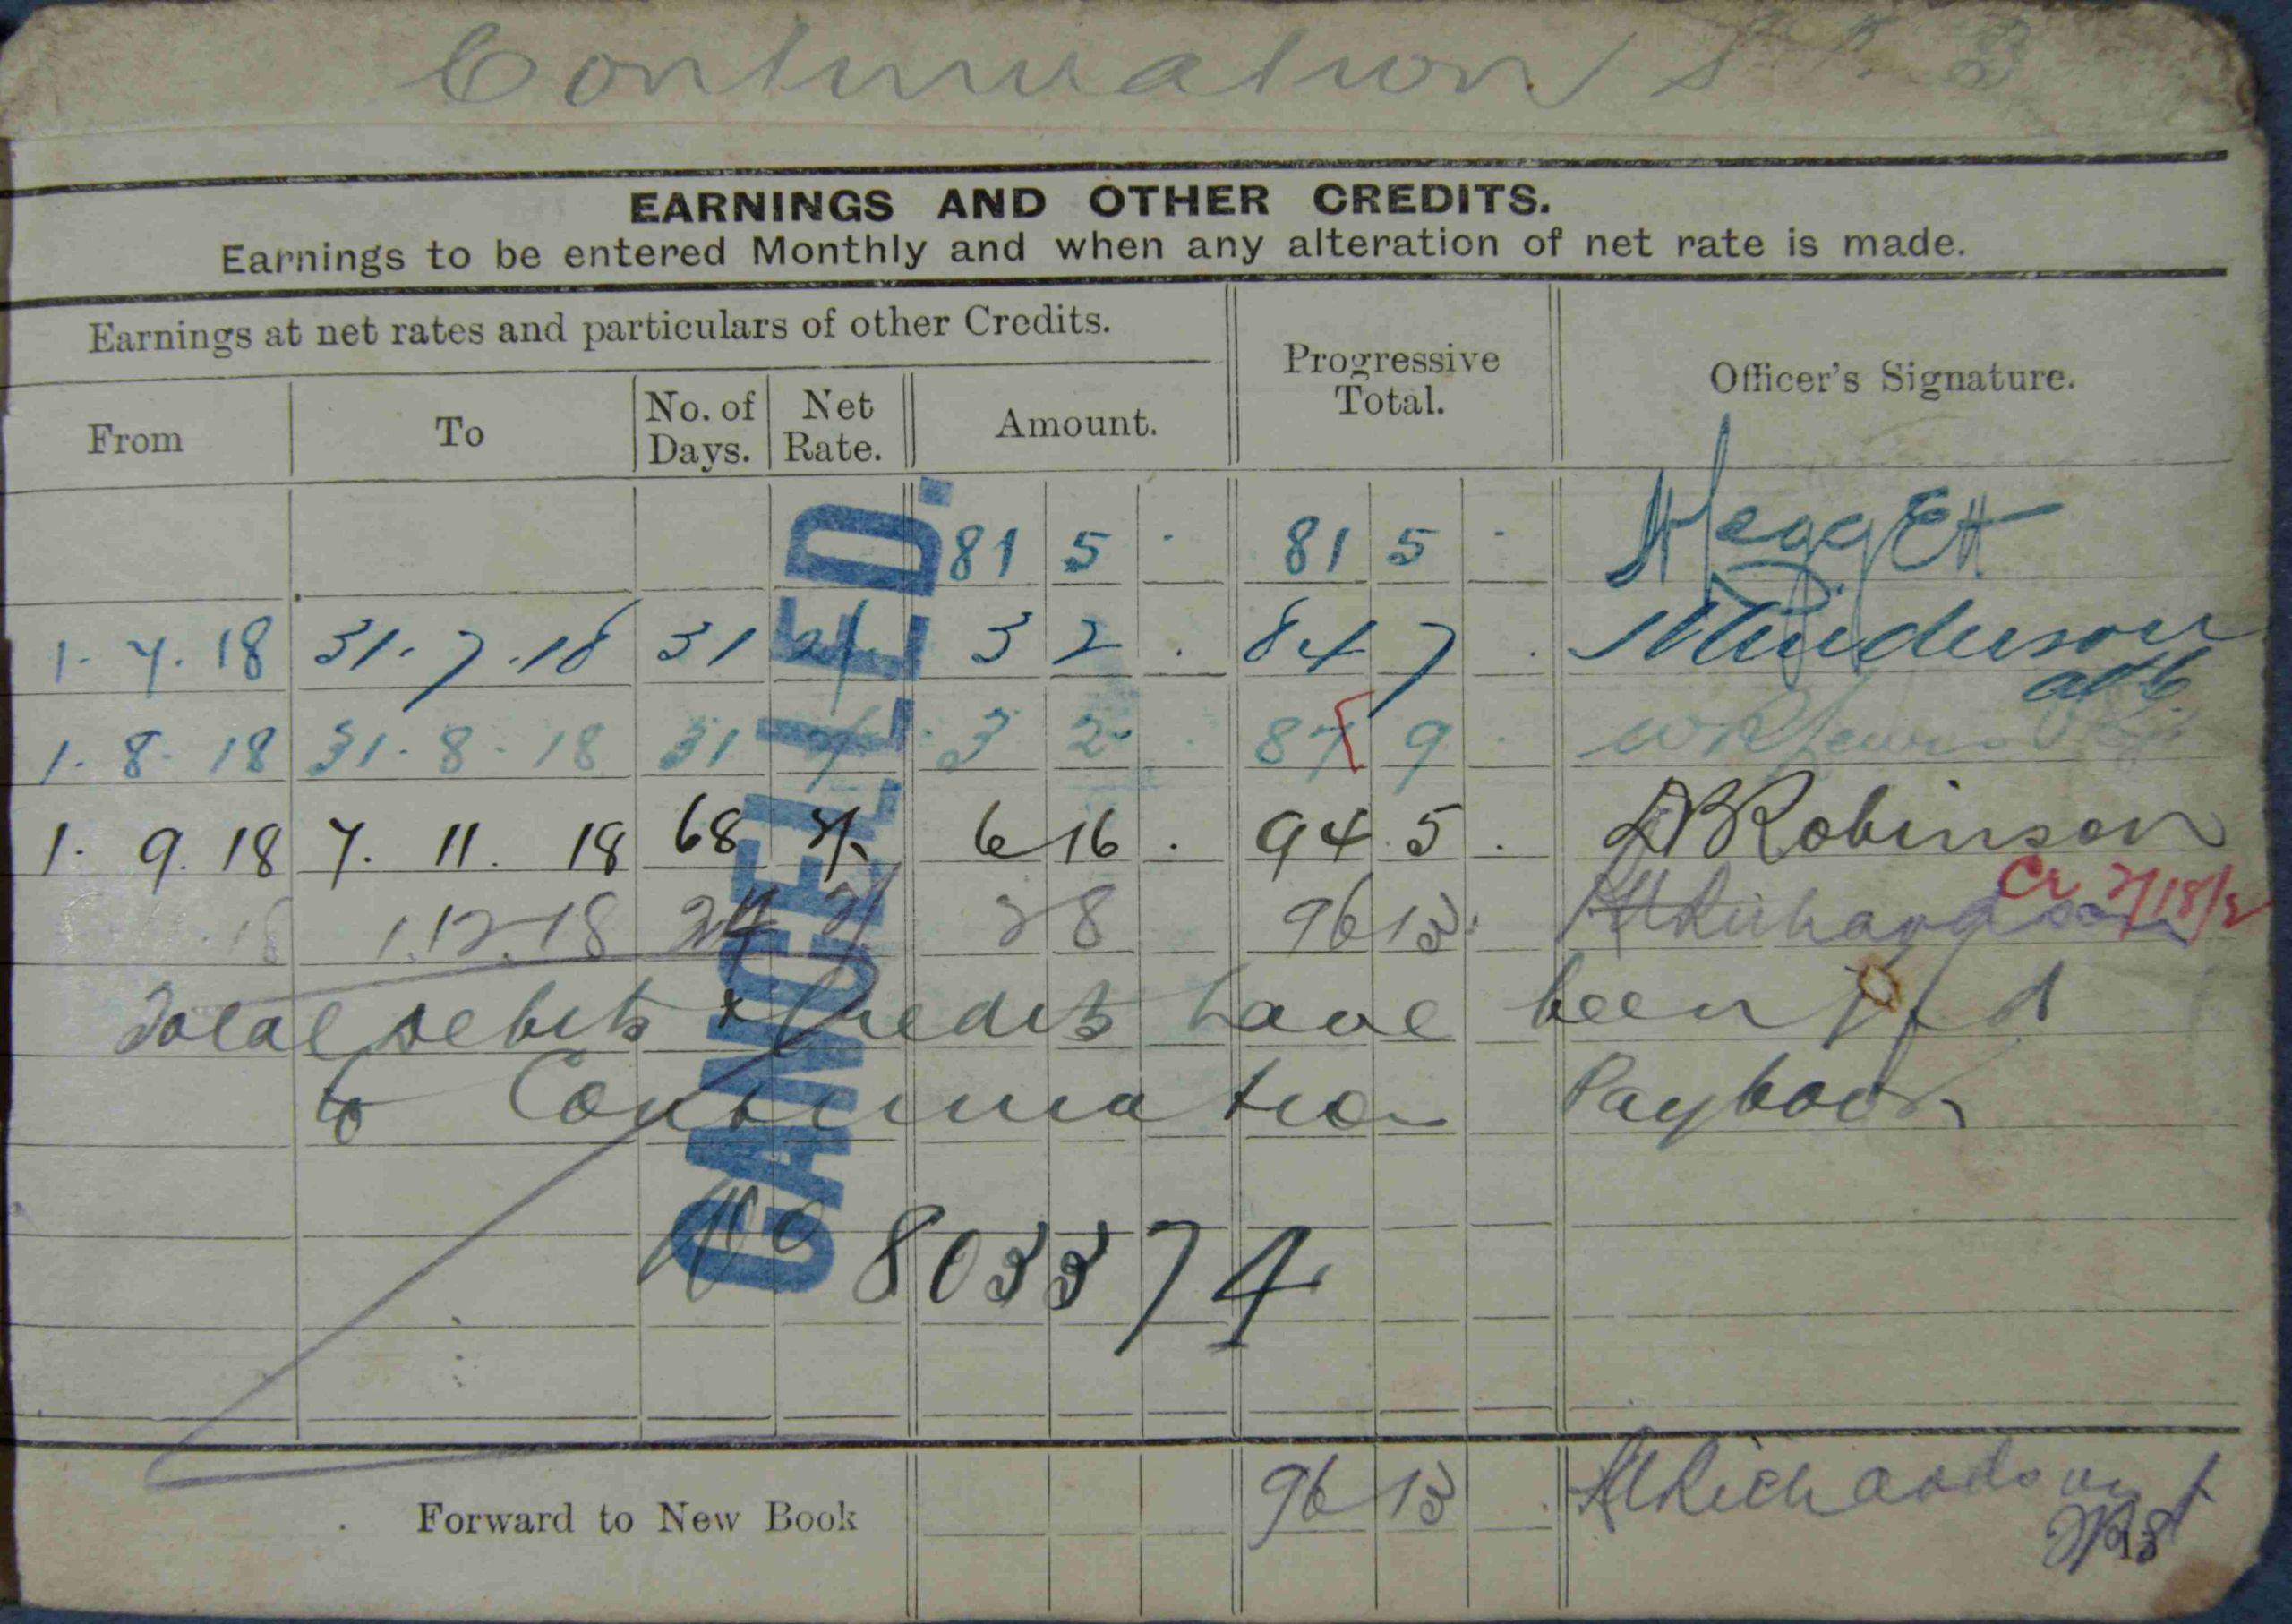 Continuation
EARNINGS AND OTHER CREDITS.
Earnings to be entered Monthly and when any alteration of net rate is made.
Earnings at net rates and particulars of other Credits.
Progressive Total.
Officer's Signature.
From To No. of Days. Net Rate. Amount.
81 5 · 81 5 ·
1. 7. 18 31. 7. 18 31 2/. 3 2 . 84 7 .
1. 8. 18 31. 8. 18 31 2/ 3 2 . 87 9 .
1. 9. 18 7. 11. 18 68 2/. 6 16 . 94 5 . Robinson
18 1.12.18 24 2/ 2 8 96 13 . Richardson
Cr 2/18/2
Total debits & Credits have been
to Continuation Paybook
No 803374
CANCELLED.
Forward to New Book 96 13 . Richardson